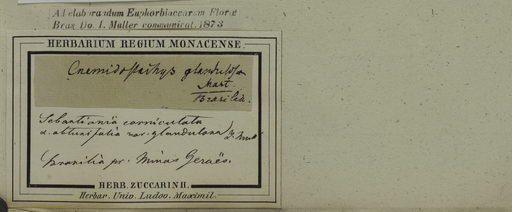 Ad elaborandum Euphorbiacearum Florae
Bras. Do. I. Müller communicat. 1873
HERBARIUM REGIUM MONACENSE.
Cnemidostachys glandulosa
Mart.
Brasilia.
Sebastiania corniculata
α. obtusifolia var. glandulosa
Brasilia pr. Minas Geraës.
HERB. ZUCCARINII.
Herbar. Univ. Ludov. Maximil.